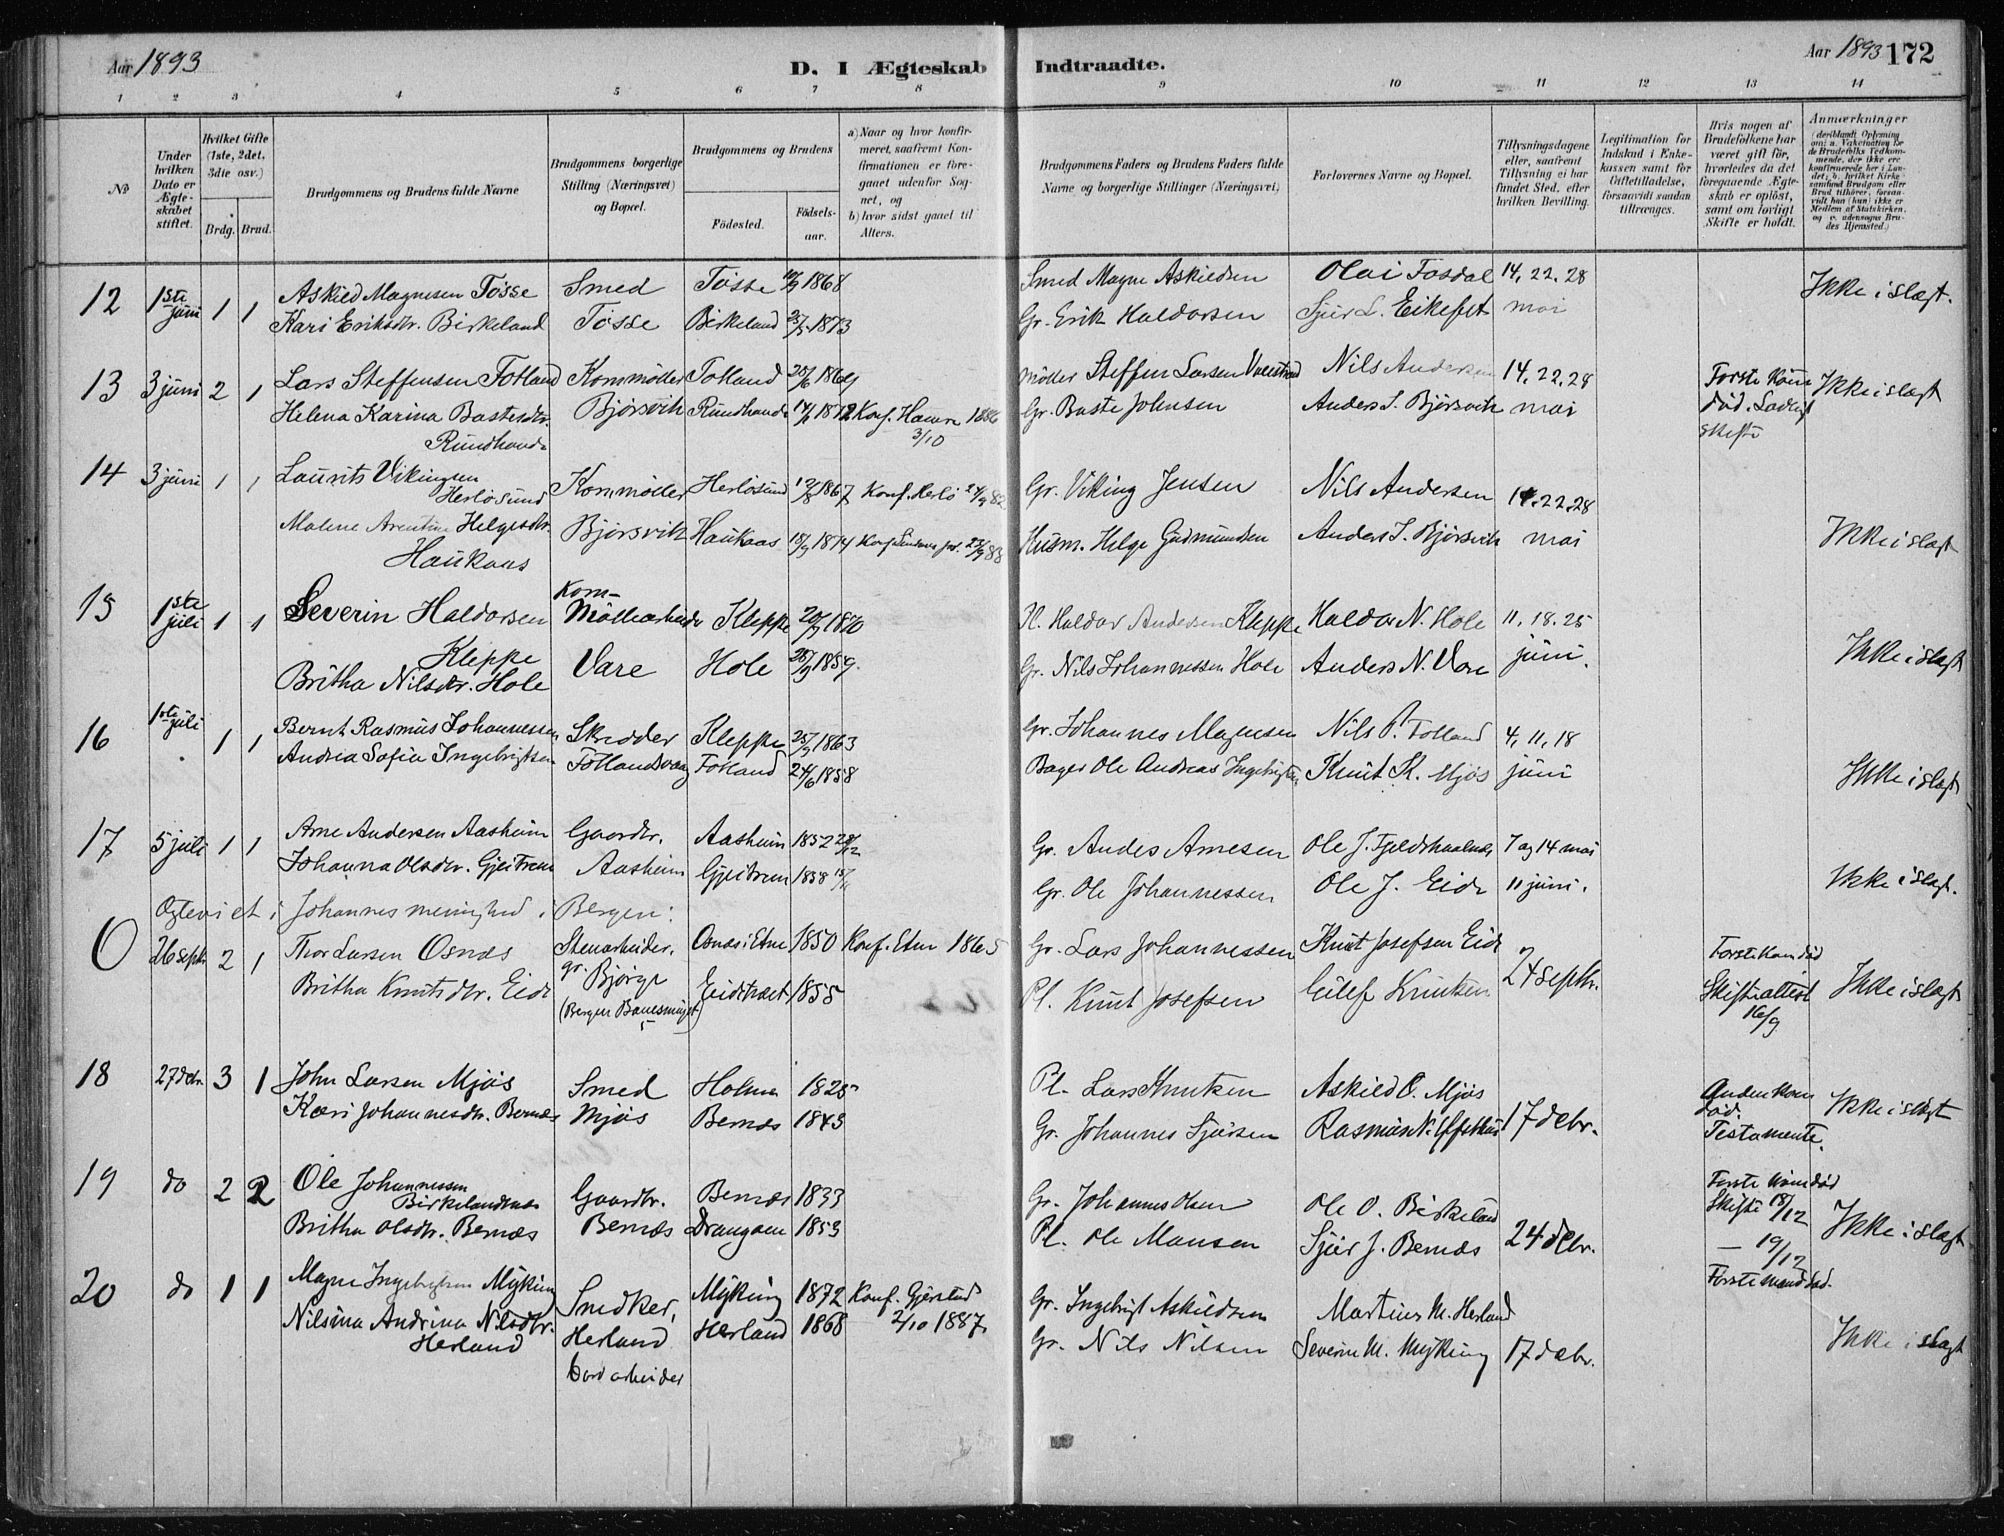 Aar 1893
D. I Ægteskab Indtraadte.
Aar 1893 172
1 2 3 4 5 6 7 8 9 10 11 12 13 14
No
Under hvilken Dato er Ægteskabet stiftet.
Hvilket Gifte (1ste, 2det, 3die osv.)
Brdg. Brud.
Brudgommens og Brudens fulde Navne
Brudgommens borgerlige Stilling (Næringsvei) og Bopæl.
Brudgommens og Brudens
Fødested. Fødselsaar.
a) Naar og hvor konfirmeret, saafremt Konfirmationen er foregaaet udenfor Sognet, og
b) hvor sidst gaaet til Alters.
Brudgommens Faders og Brudens Faders fulde Navne og borgerlige Stillinger (Næringsvei)
Forlovernes Navne og Bopæl.
Tillysningsdagene eller, saafremt Tillysning ei har fundet Sted, efter hvilken Bevilling.
Legitimation for Indskud i Enkekassen samt for Giftetilladelse, forsaavidt saadan tiltrænges.
Hvis nogen af Brudefolkene har været gift før, hvorledes da det foregaaende Ægteskab er opløst, samt om lovligt Skifte er holdt.
Anmærkninger
12 1ste juni 1 1 Askild Magnesen Tösse Smed Tösse 1868 Smed Magne Askildsen Olai Fosdal 14, 22, 28 Ikke i slægt.
Kari Eriksdtr. Birkeland Tösse Birkeland 1873 Gr. Erik Haldorsen Sjur L. Eikefet mai
13 3 juni 2 1 Lars Steffensen Totland Kornmöller Totland 20/6 1864 Möller Steffen Larsen Nils Andersen 14, 22, 28 Forste Kone Ikke i slægt
Helena Karina Bastesdtr. Björsvik Rundhaude 1872 Konf. Hamre 1886 Gr. Baste Johnsen Anders I. Björsvik mai död. Lovligt
Rundhaude 3/10 skifte
14 3 juni 1 1 Laurits Vikingsen Kornmöller Herlösund 12/8 1867 Konf. Herlö Gr. Viking Jensen Nils Andersen 14, 22, 28
Herlösund
Malene Arentine Helgesdtr. Björsvik Haukaas 18/9 1874 Husm. Helge Gudmundsen Anders I. Björsvik mai Ikke i slægt
Haukaas
15 1ste juli 1 1 Severin Haldorsen Korn- Möllearbeider Kleppe 1870 Pl. Haldor Andersen Kleppe Haldor N. Hole 11, 18, 25 Ikke i slægt
Kleppe
Britha Nilsdtr. Hole Vare Hole 1859. Gr. Nils Johannessen Hole Anders N. Vare juni.
16 1ste juli 1 1 Bernt Rasmus Johannessen Skredder Kleppe 25/9 1863 Gr. Johannes Magnesen Nils P. Totland 4, 11, 18
Andrea Sofia Ingebrigtsen Fotlandsvaag Fotland 24/6 1858 Bager Ole Andreas Ingebrigtsen Knut K. Mjös juni Ikke i slægt
17 5 juli 1 1 Arne Andersen Aasheim Gaardbr. Aasheim 1852 Gr. Anders Arnesen Ole J. 7 og 14 mai
Johanna Olsdtr. Gjeitrem Aasheim Gjeitrem 1858 Gr. Ole Johannessen Ole J. Eide 11 juni. Ikke i slægt.
Ægteviet i Johannes menighed i Bergen:
0 26 septr. 2 1 Thor Larsen Osnæs Stenarbeider, Osnæs i Etne 1850 Konf. Etne 1865 Gr. Lars Johannessen Knut Josefsen Eide 24 septbr. Forste Kone död
Britha Knutsdtr. Eide gr. Björge Eidetræet 1855 Pl. Knut Josefsen Eilef Knutsen Skifteattest Ikke i slægt
(Bergen 16/9
18 27 debr. 3 1 John Larsen Mjös Smed Holme 1825 Pl. Lars Knutsen Askild O. Mjös Anden Kone
Kari Johannesdtr. Bernæs Mjös Bernæs 1843 Gr. Johannes Sjursen Rasmus N. 17 debr. död. Ikke i slægt
Testamente.
19 do 2 2 Ole Johannessen Gaardbr. Bernæs 1833 Gr. Johannes Olsen Ole O. Birkeland 24 debr. Forste Kone död
Birkelandnes Skifte 18/12
Britha Olsdtr. Bernæs Bernæs Drangøen 1853 Pl. Ole Monsen Sjur J. Bernæs — 19/12 Ikke i slægt
Forste mand död.
20 do 1 1 Magne Ingebrigtsen Myking Snedker, Myking 1872 Konf. Gjerstad Gr. Ingebrigt Askildsen Martinus M. Herland
Nilsina Andrina Nilsdtr. Herland Herland 1868 2/10 1887. Gr. Nils Nilsen Severin M. Myking 17 debr. Ikke i slægt
Herland